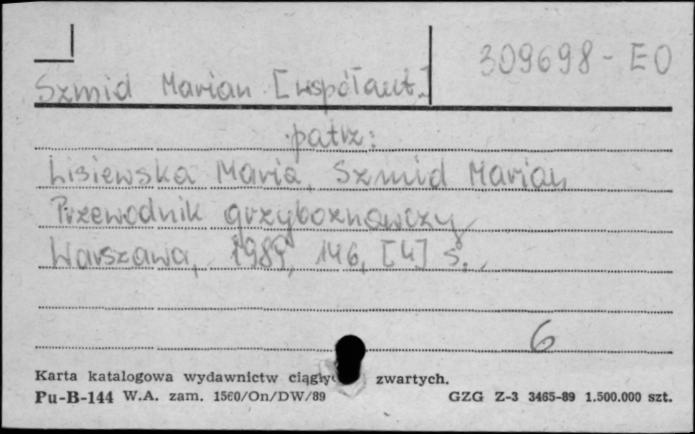 309698-EO
Szmid Marian [współaut.]
patrz:
Lisiewska Maria, Szmid Marian
Przewodnik grzyboznawczy
Warszawa, 1989, 146, [4] s.
6
Karta katalogowa wydawnictw zwartych.
Pu-B-144 W.A. zam. 1560/On/DW/89 GZG Z-3 3465-89 1.500.000 szt.